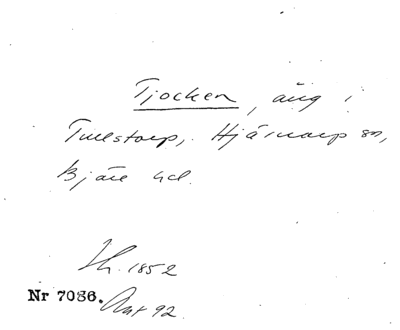 Tjocken, äng i
Tullstorp, Hjärnarp sn,
Bjäre hd.
Lh. 1852
Nr 7086. Ant 92.